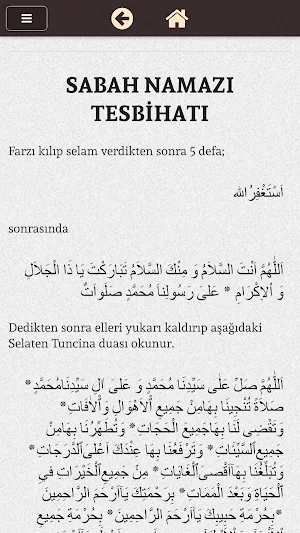 SABAH NAMAZI
TESBİHATI
Farzı kılıp selam verdikten sonra 5 defa;
اَسْتَغْفِرُ الله
sonrasında
اَللّٰهُمَّ اَنْتَ السَّلاَمُ وَ مِنْكَ السَّلاَمُ تَبَارَكْتَ يَا ذَا الْجَلاَلِ
وَ اْلاِكْرَامِ * عَلَى رَسُولِنَا مُحَمَّدٍ صَلَوَاتٌ
Dedikten sonra elleri yukarı kaldırıp aşağıdaki
Selaten Tuncina duası okunur.
اَللّٰهُمَّ صَلِّ عَلٰى سَيِّدِنَا مُحَمَّدٍ وَ عَلٰىَ اٰلِ سَيِّدِنَامُحَمَّدٍ*
صَلاَةً تُنْجِينَا بِهَامِنْ جَمِيعِ اْلاَهْوَالِ وَ اْلاٰفَاتِ*
وَتَقْضِى لَنَا بِهَاجَمِيعَ الْحَجَاتِ* وَتُطَهِّرُنَا بِهَامِنْ
جَمِيعِ السَّيِّئَاتِ* وَتَرْفَعُنَا بِهَا عِنْدَكَ اَعْلَى الدَّرَجَاتِ*
وَتُبَلِّغُنَا بِهَااَقْصَى الْغَايَاتِ* مِنْ جَمِيعِ الْخَيْرَاتِ فِي
الْحَيَاةِ وَبَعْدَ الْمَمَاتِ* بِرَحْمَتِكَ يَااَرْحَمَ الرَّاحِمِينَ
*بِحُرْمَةِ حَبِيبِكَ يَااَرْحَمَ الرَّاحِمِينَ* بِحُرْمَةِ جَمِيعِ